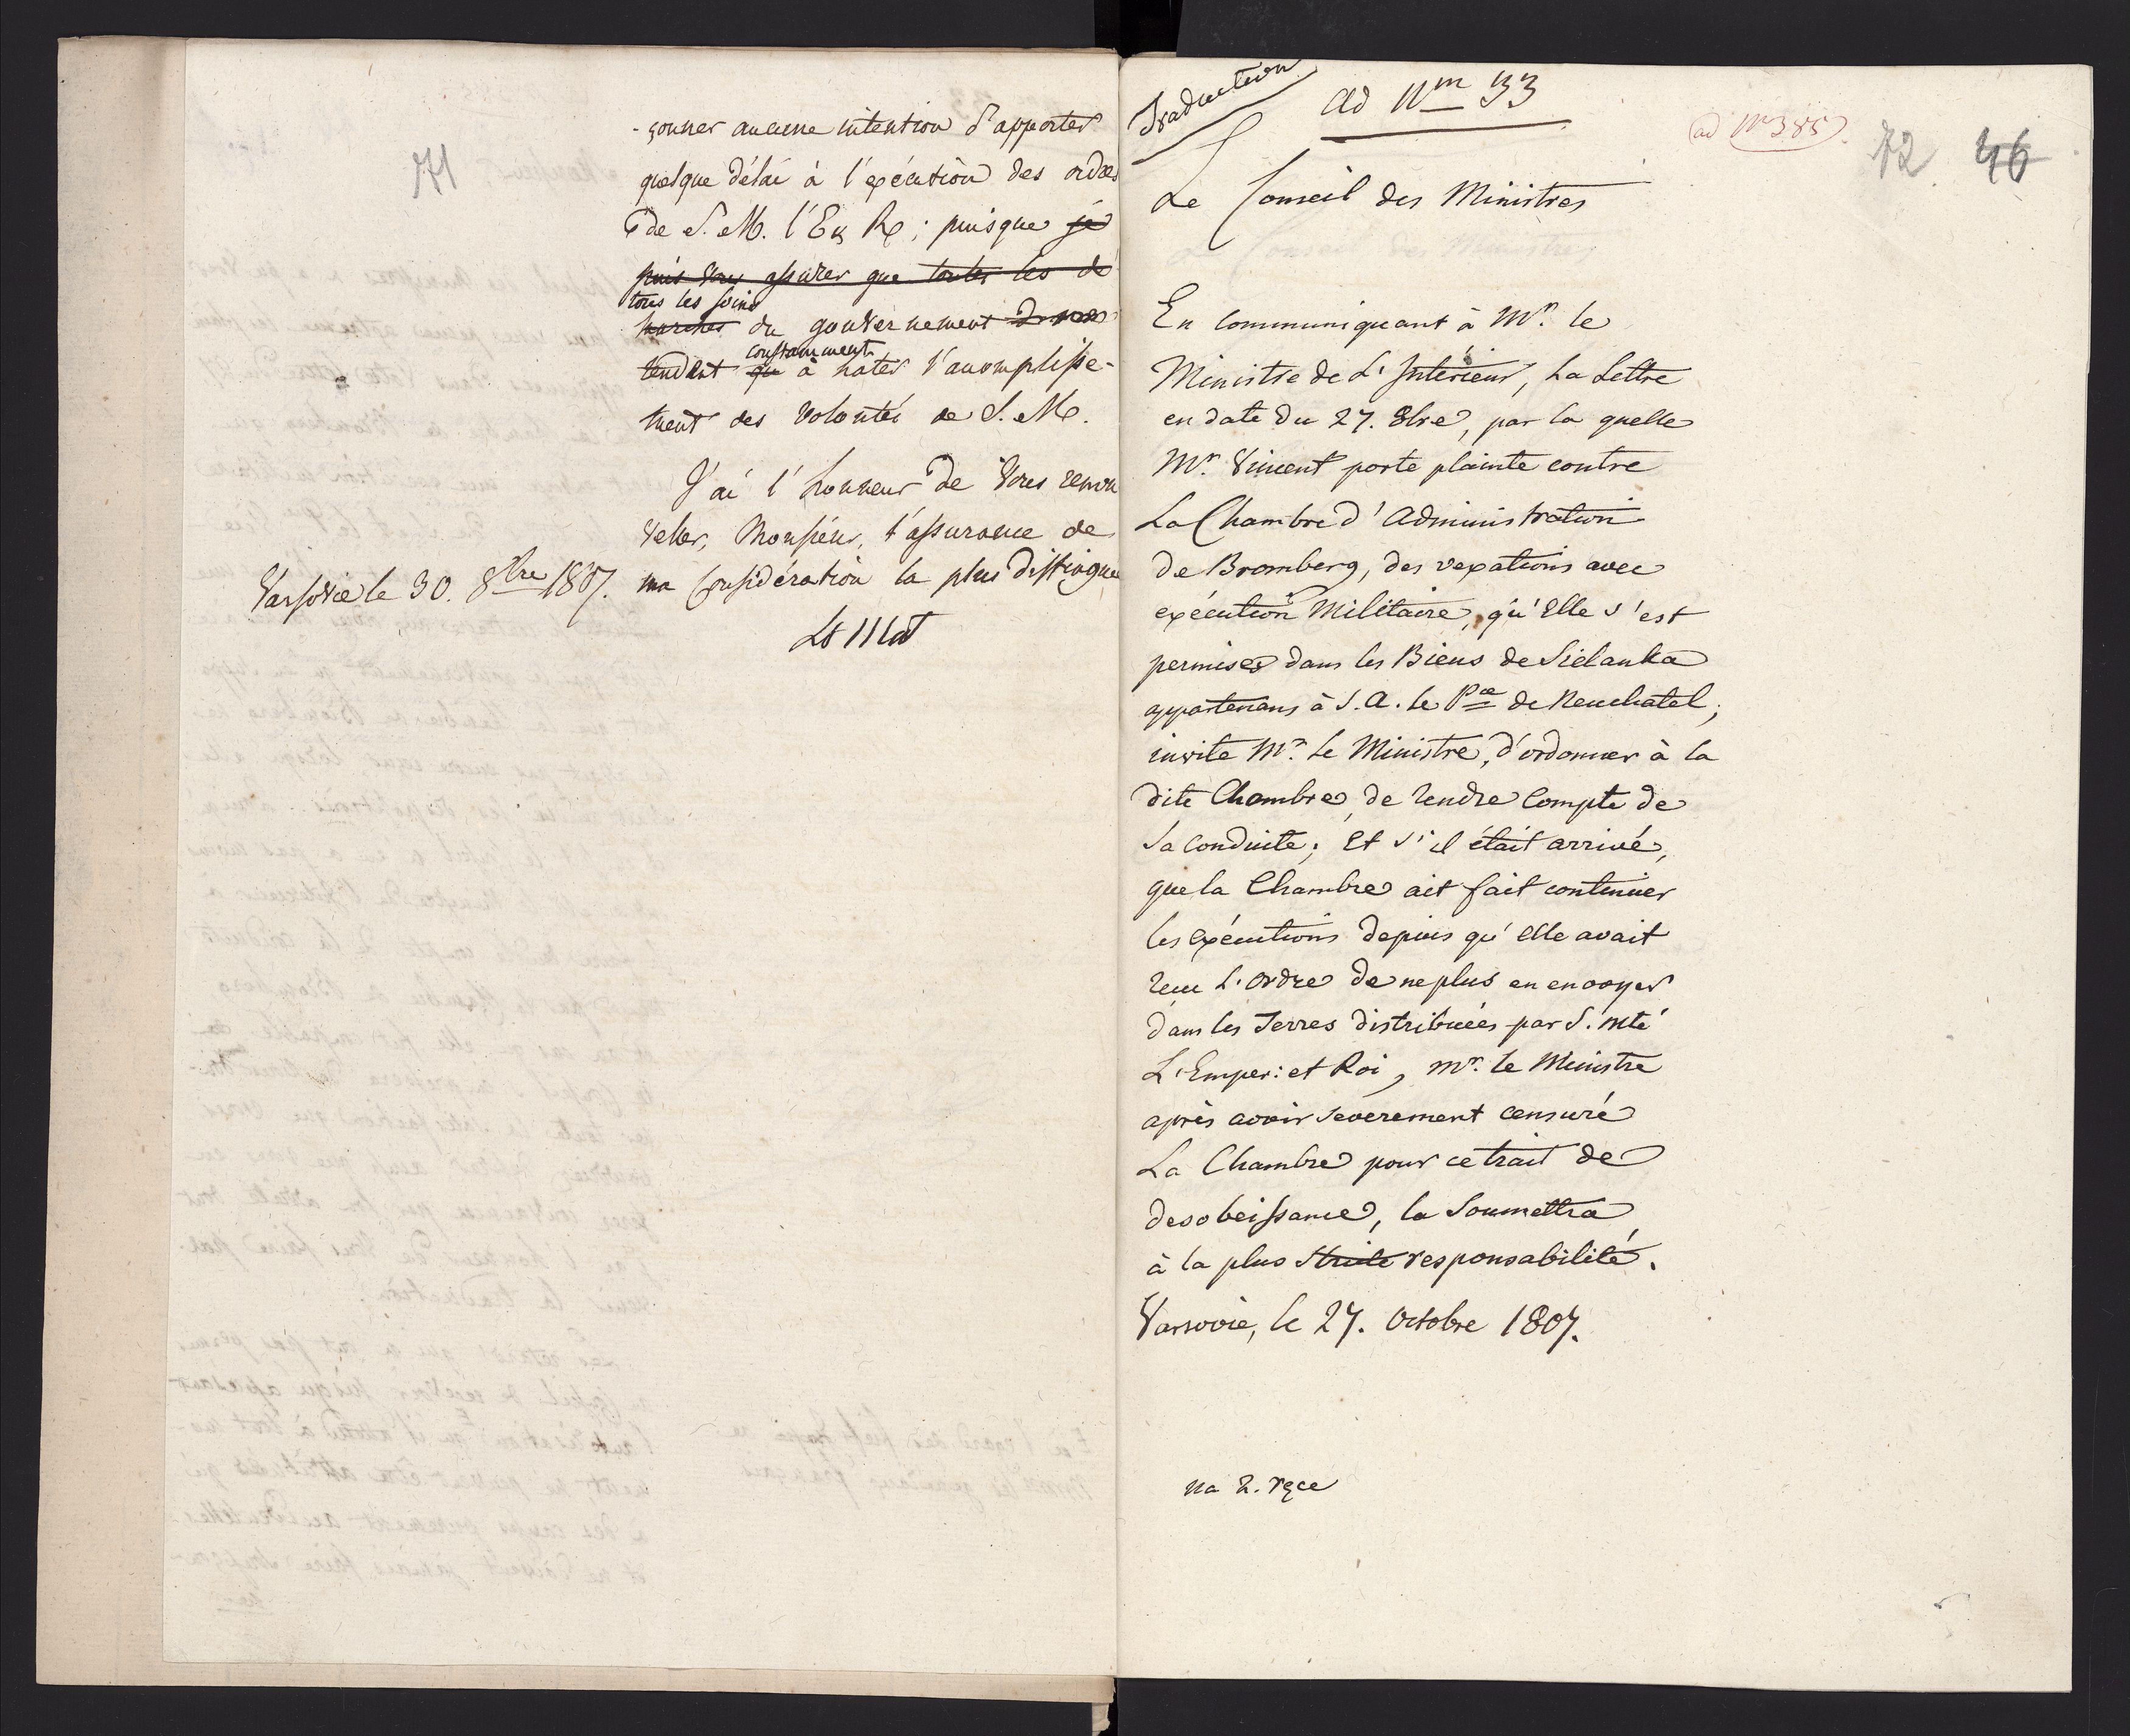 71
-çonner aucune intention d'apporter
quelque délai à l'exécution des ordres
de S. M. l'E. & R.; puisque je
puis Vous assurer que toutes les dé
tous les soins
marches du gouvernement
constamment
tendent à hater l'accomplisse-
ment des volontés de S. M.
J'ai l'honneur de Vous renou
veller, Monsieur, l'assurance de
Varsovie le 30. 8bre 1807. ma considération la plus distingue
Traduction
ad Num 33
ad No 385
72 46
Le Conseil des Ministres
En communiquant à Mr. le
Ministre de L'Intérieur, La Lettre
en date du 27. 8bre, par la quelle
Mr. Vincent porte plainte contre
La Chambre d'Administration
de Bromberg, des vexations avec
exécution Militaire, qu'Elle s'est
permises dans les Biens de Sielanka
appartenans à S. A. le Pce de Neuchatel;
invite Mr. Le Ministre, d'ordonner à la
dite Chambre, de rendre Compte de
Sa conduite; Et s'il était arrivé,
que la Chambre ait fait continuer
les exécutions depuis qu'elle avait
reçu L'ordre de ne plus en envoyer
dans les Terres distribuées par S. Mté
L'Emper: et Roi, Mr. le Ministre
après avoir severement censuré
La Chambre pour ce trait de
desobeissance, la Soumettra
à la plus Stricte responsabilité.
Varsovie, le 27. Octobre 1807.